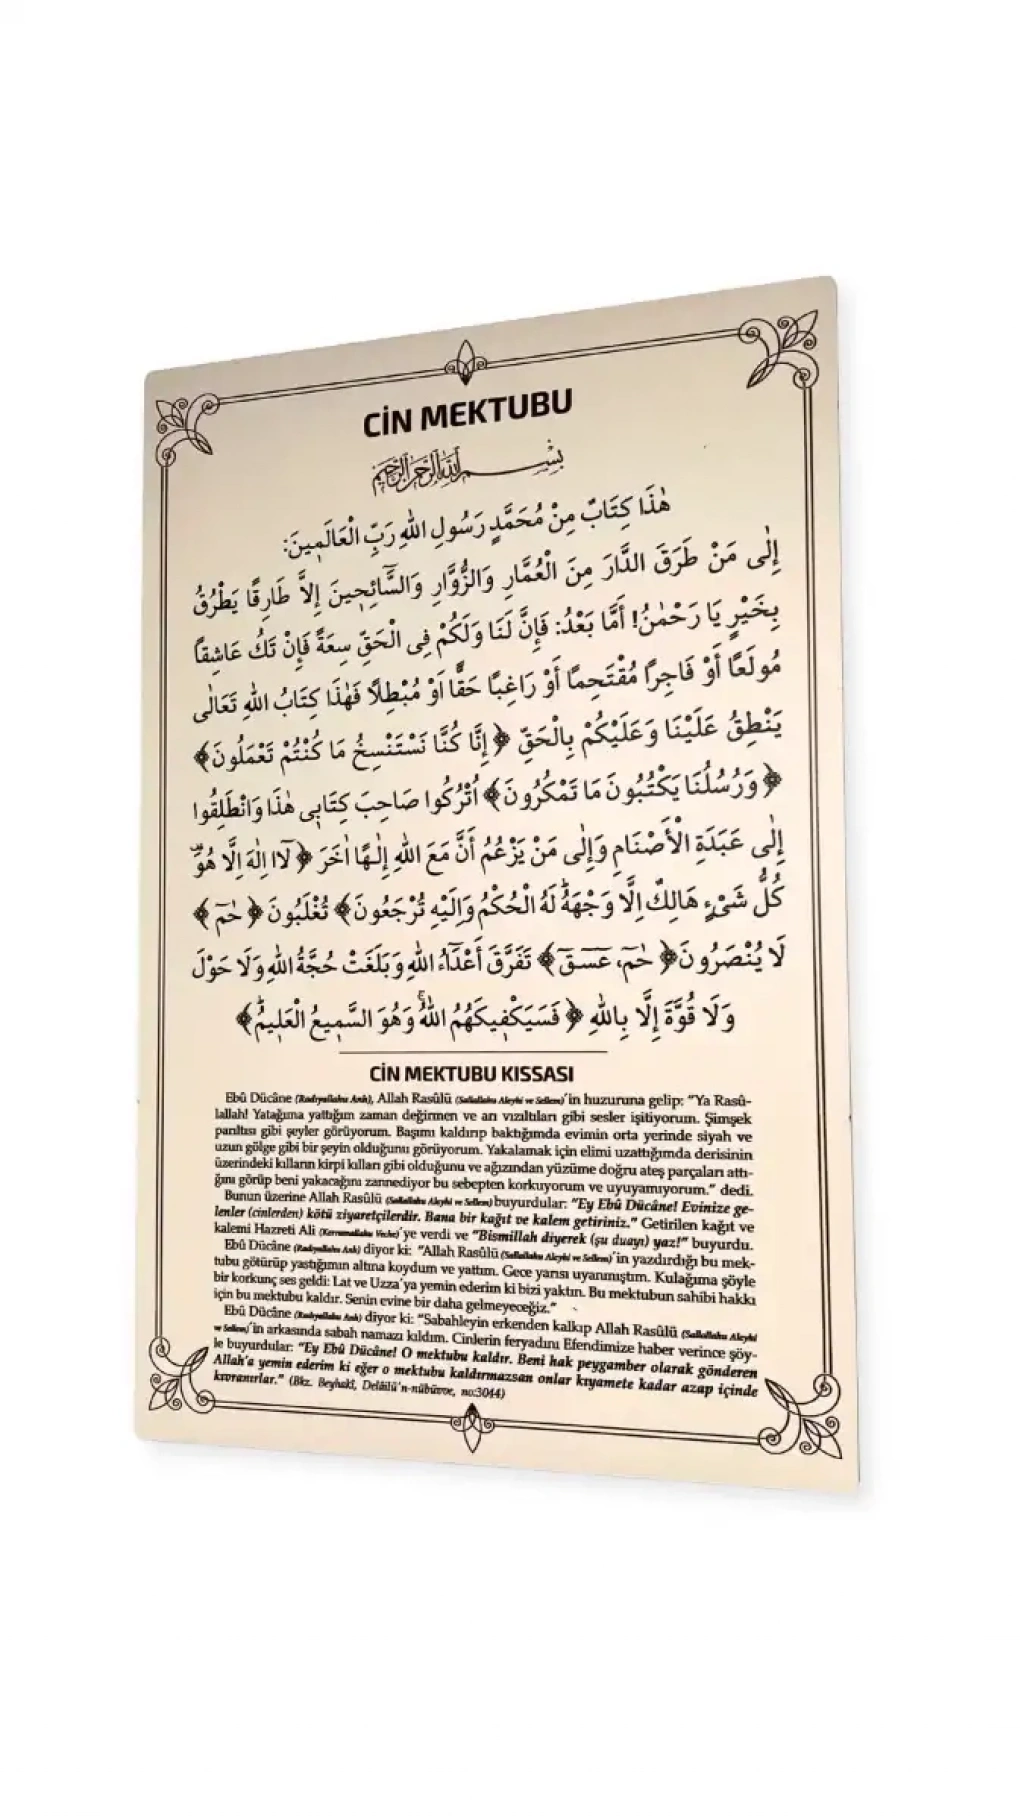 CİN MEKTUBU
بِسْمِ اللهِ الرَّحْمٰنِ الرَّحِيمِ
هٰذَا كِتَابٌ مِنْ مُحَمَّدٍ رَسُولِ اللهِ رَبِّ الْعَالَمِينَ:
إِلٰى مَنْ طَرَقَ الدَّارَ مِنَ الْعُمَّارِ وَالزُّوَّارِ وَالسَّائِحِينَ إِلاَّ طَارِقًا يَطْرُقُ
بِخَيْرٍ يَا رَحْمٰنُ! أَمَّا بَعْدُ: فَإِنَّ لَنَا وَلَكُمْ فِى الْحَقِّ سِعَةً فَإِنْ تَكُ عَاشِقًا
مُولَعًا أَوْ فَاجِرًا مُقْتَحِمًا أَوْ رَاغِبًا حَقًّا أَوْ مُبْطِلًا فَهٰذَا كِتَابُ اللهِ تَعَالٰى
يَنْطِقُ عَلَيْنَا وَعَلَيْكُمْ بِالْحَقِّ ﴿إِنَّا كُنَّا نَسْتَنْسِخُ مَا كُنْتُمْ تَعْمَلُونَ﴾
﴿وَرُسُلُنَا يَكْتُبُونَ مَا تَمْكُرُونَ﴾ اُتْرُكُوا صَاحِبَ كِتَابِى هٰذَا وَانْطَلِقُوا
إِلٰى عَبَدَةِ الْأَصْنَامِ وَإِلٰى مَنْ يَزْعُمُ أَنَّ مَعَ اللهِ إِلٰهًا اٰخَرَ ﴿لَآ اِلٰهَ اِلَّا هُوَ
كُلُّ شَىْءٍ هَالِكٌ اِلَّا وَجْهَهُ لَهُ الْحُكْمُ وَاِلَيْهِ تُرْجَعُونَ﴾ تُغْلَبُونَ ﴿حٰمٓ﴾
لَا يُنْصَرُونَ ﴿حٰمٓ، عٓسٓقٓ﴾ تَفَرَّقَ أَعْدَاءُ اللهِ وَبَلَغَتْ حُجَّةُ اللهِ وَلَا حَوْلَ
وَلَا قُوَّةَ إِلَّا بِاللهِ ﴿فَسَيَكْفِيكَهُمُ اللهُ وَهُوَ السَّمِيعُ الْعَلِيمُ﴾
CİN MEKTUBU KISSASI
Ebû Dücâne (Radıyallahu Anh), Allah Rasûlü (Sallallahu Aleyhi ve Sellem)'in huzuruna gelip: "Ya Rasû-
lallah! Yatağıma yattığım zaman değirmen ve arı vızıltıları gibi sesler işitiyorum. Şimşek
parıltısı gibi şeyler görüyorum. Başımı kaldırıp baktığımda evimin orta yerinde siyah ve
uzun gölge gibi bir şeyin olduğunu görüyorum. Yakalamak için elimi uzattığımda derisinin
üzerindeki kılların kirpi kılları gibi olduğunu ve ağızından yüzüme doğru ateş parçaları attı-
ğını görüp beni yakacağını zannediyor bu sebepten korkuyorum ve uyuyamıyorum." dedi.
Bunun üzerine Allah Rasûlü (Sallallahu Aleyhi ve Sellem) buyurdular: "Ey Ebû Dücâne! Evinize ge-
lenler (cinlerden) kötü ziyaretçilerdir. Bana bir kağıt ve kalem getiriniz." Getirilen kağıt ve
kalemi Hazreti Ali (Kerramallahu Veche)'ye verdi ve "Bismillah diyerek (şu duayı) yaz!" buyurdu.
Ebû Dücâne (Radıyallahu Anh) diyor ki: "Allah Rasûlü (Sallallahu Aleyhi ve Sellem)'in yazdırdığı bu mek-
tubu götürüp yastığımın altına koydum ve yattım. Gece yarısı uyanmıştım. Kulağıma şöyle
bir korkunç ses geldi: Lat ve Uzza'ya yemin ederim ki bizi yaktın. Bu mektubun sahibi hakkı
için bu mektubu kaldır. Senin evine bir daha gelmeyeceğiz."
Ebû Dücâne (Radıyallahu Anh) diyor ki: "Sabahleyin erkenden kalkıp Allah Rasûlü (Sallallahu Aleyhi
ve Sellem)'in arkasında sabah namazı kıldım. Cinlerin feryadını Efendimize haber verince şöy-
le buyurdular: "Ey Ebû Dücâne! O mektubu kaldır. Beni hak peygamber olarak gönderen
Allah'a yemin ederim ki eğer o mektubu kaldırmazsan onlar kıyamete kadar azap içinde
kıvranırlar." (Bkz. Beyhakî, Delâilü'n-nübüvve, no:3044)